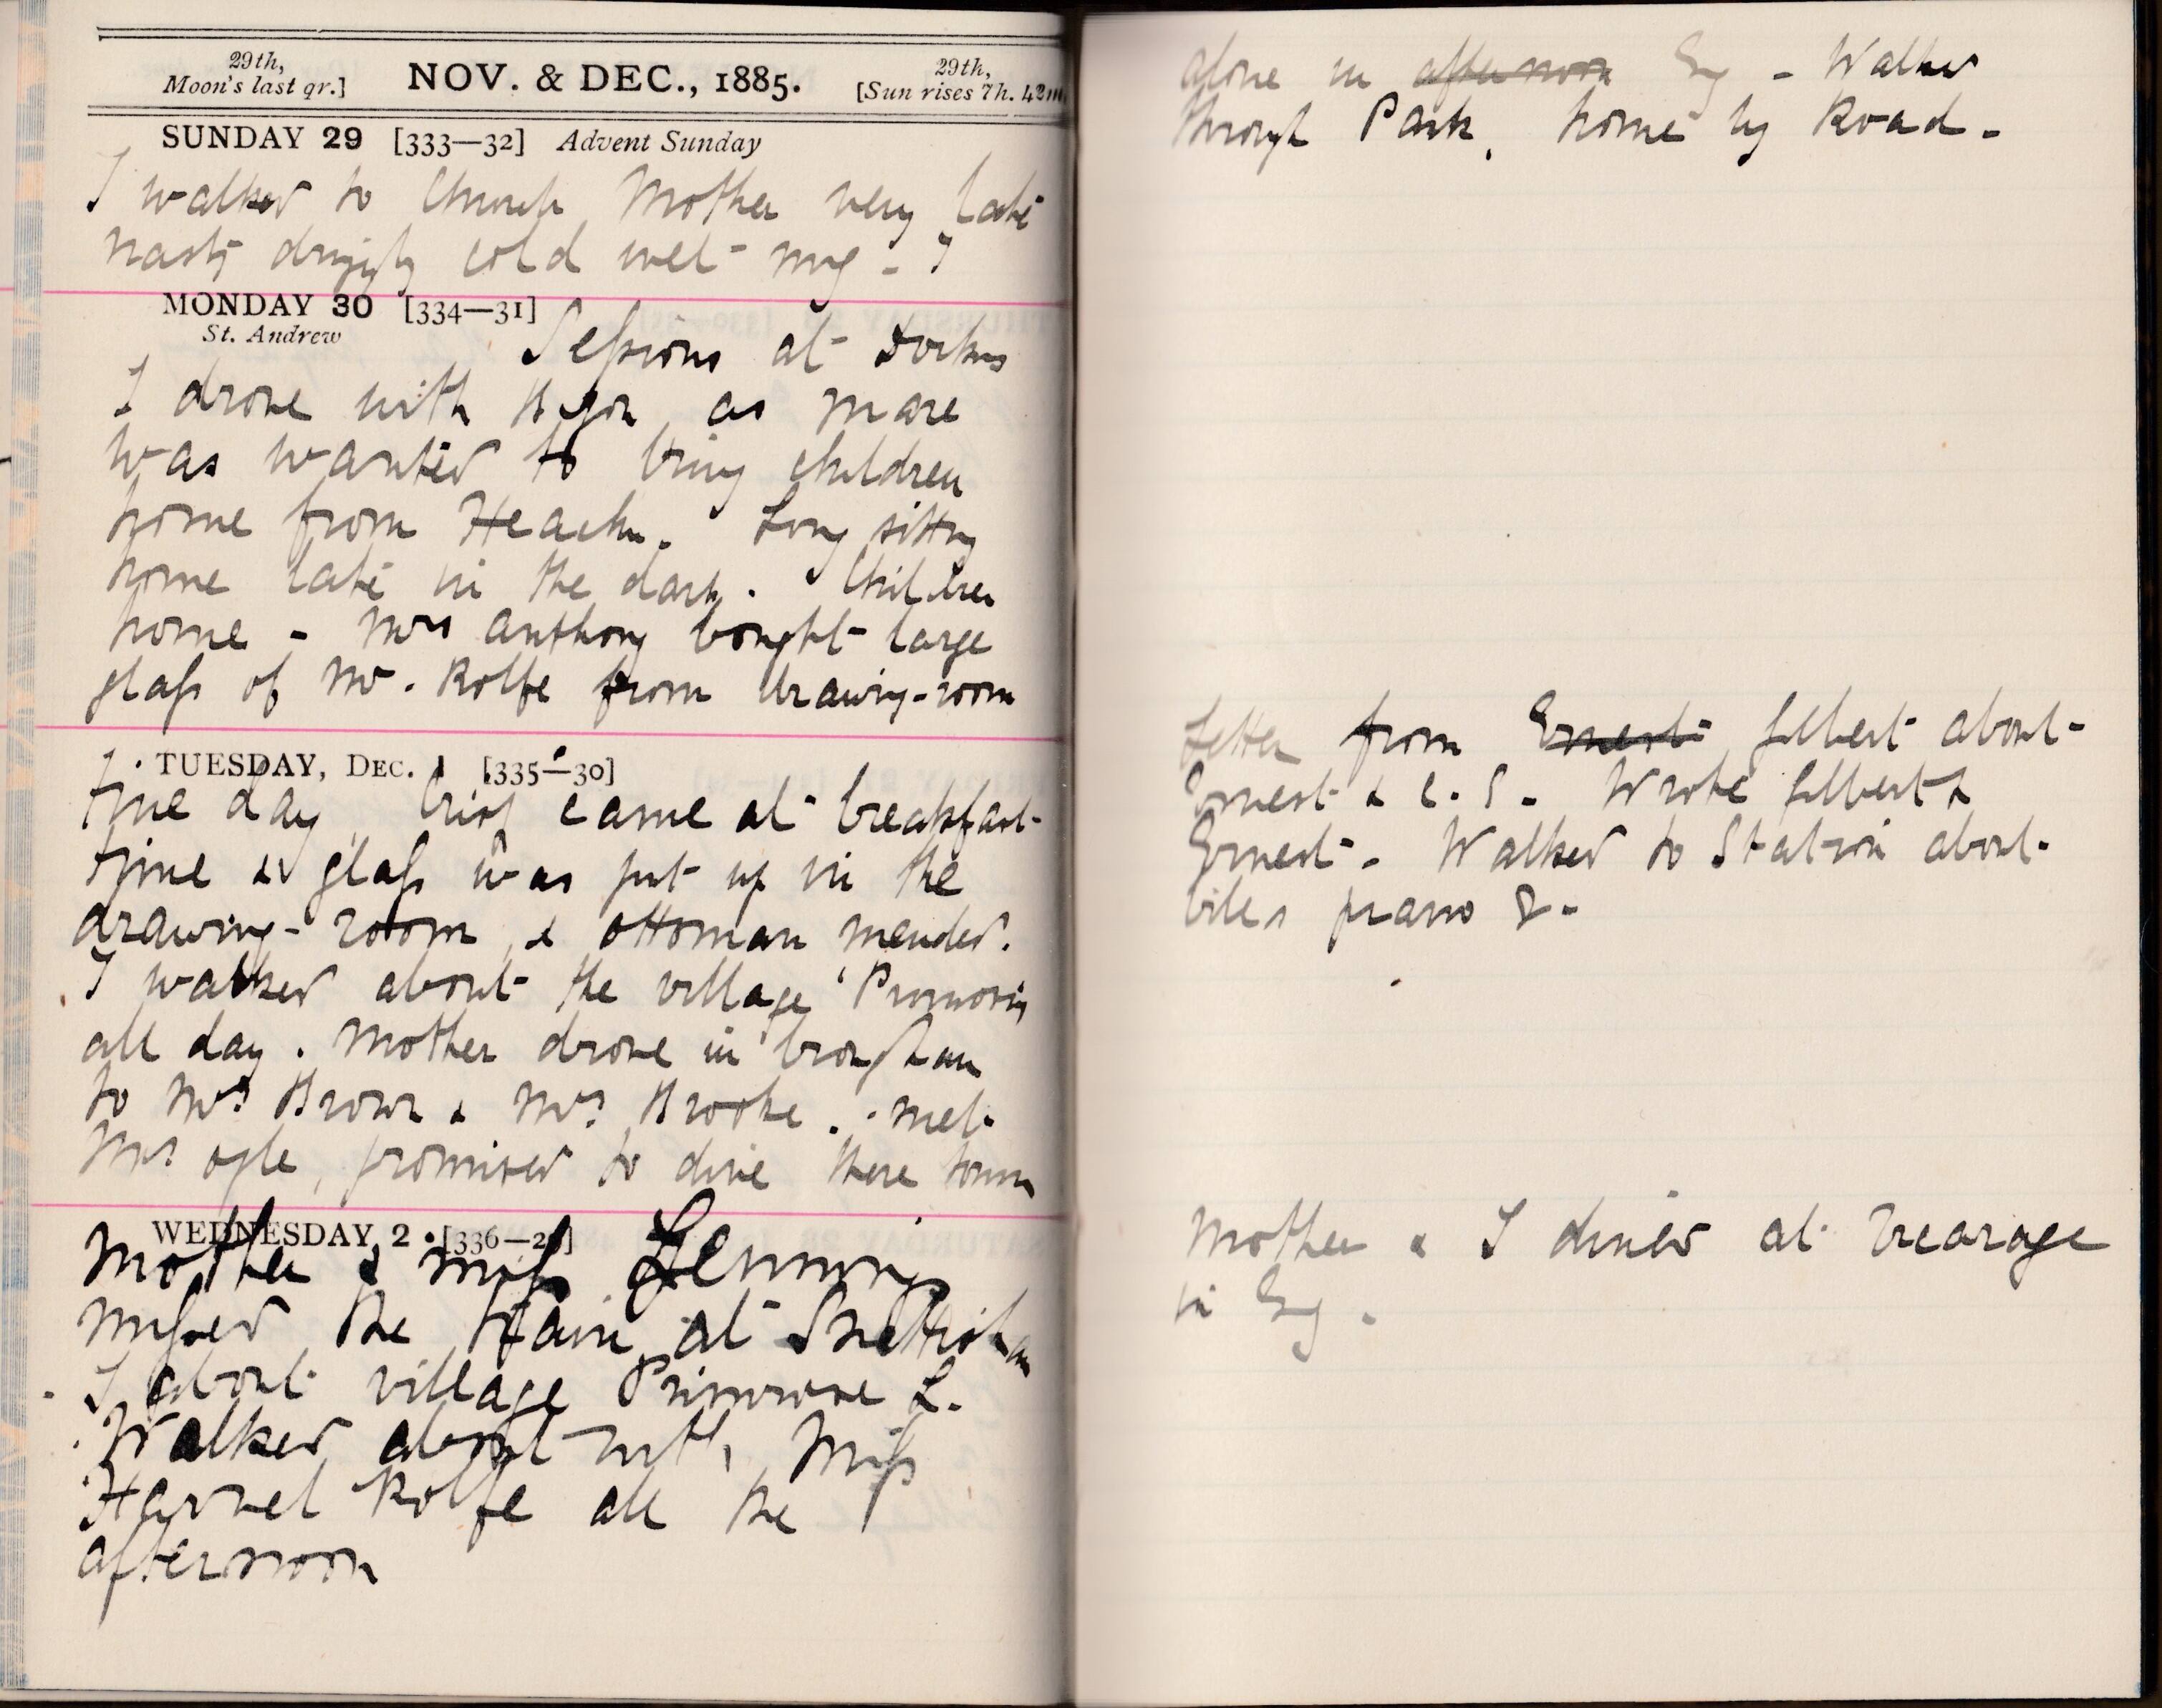 29th,
Moon's last qr.]
NOV. & DEC., 1885.
29th,
[Sun rises 7h. 42m.
SUNDAY 29 [333—32] Advent Sunday
I walked to Church Mother very late
nasty drizzly cold wet mg - I
MONDAY 30 [334—31]
St. Andrew
Sessions at Docking
I drove with as mare
was wanted to bring children
home from Heacham. Long sitting
home late in the dark. Children
home - Mrs Anthony bought large
glass of Mr. Rolfe from drawing-room
TUESDAY, DEC. 1 [335—30]
Fine day, came at breakfast
time & glass was put up in the
drawing-room, & ottoman mended.
I walked about the village
all day. Mother drove in brougham
to Mrs Brown & Mrs Brooke. met
Mrs Ogle, promised to dine there
WEDNESDAY 2 [336—29]
Mother & Miss
missed the train at Snettisham
I about village Primrose L.
Walked about with Miss
Rolfe all the
afternoon
alone in afternoon Evg - Walked
through Park, home by Road -
Letter from Ernest Gilbert about
Ernest & C.S. - Wrote Gilbert &
Ernest - Walked to Station about
piano &-
Mother & I dined at Vicarage
in Evg.